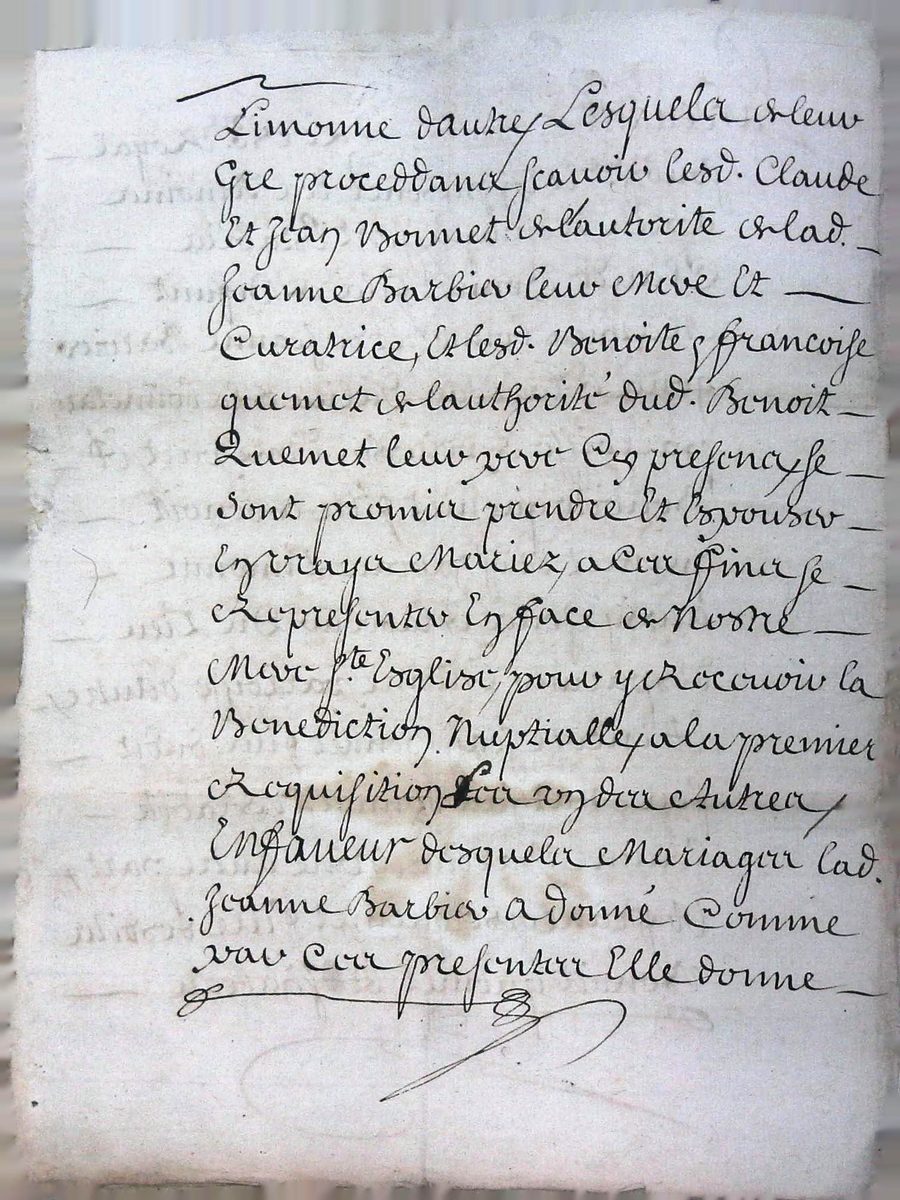 Limonne dautre, Lesquels de leur
Gre proceddans scavoir lesd. Claude
Et Jean Bonnet de l'autorite de lad.
Jeanne Barbier leur Mere Et
Curatrice, Et lesd. Benoite & francoise
quemet de lauthorité dud. Benoit
Quemet leur pere Cy presens, se
sont promis prendre Et Espouser
En vrays Mariez, a Ces fins se
Representer En face de Nostre
Mere Ste Esglise, pour y Recevoir la
Benediction Nuptialle, a la premier
Requisition Les uns des Autres,
En faveur desquels Mariages lad.
Jeanne Barbier a donné Comme
par Ces presentes Elle donne